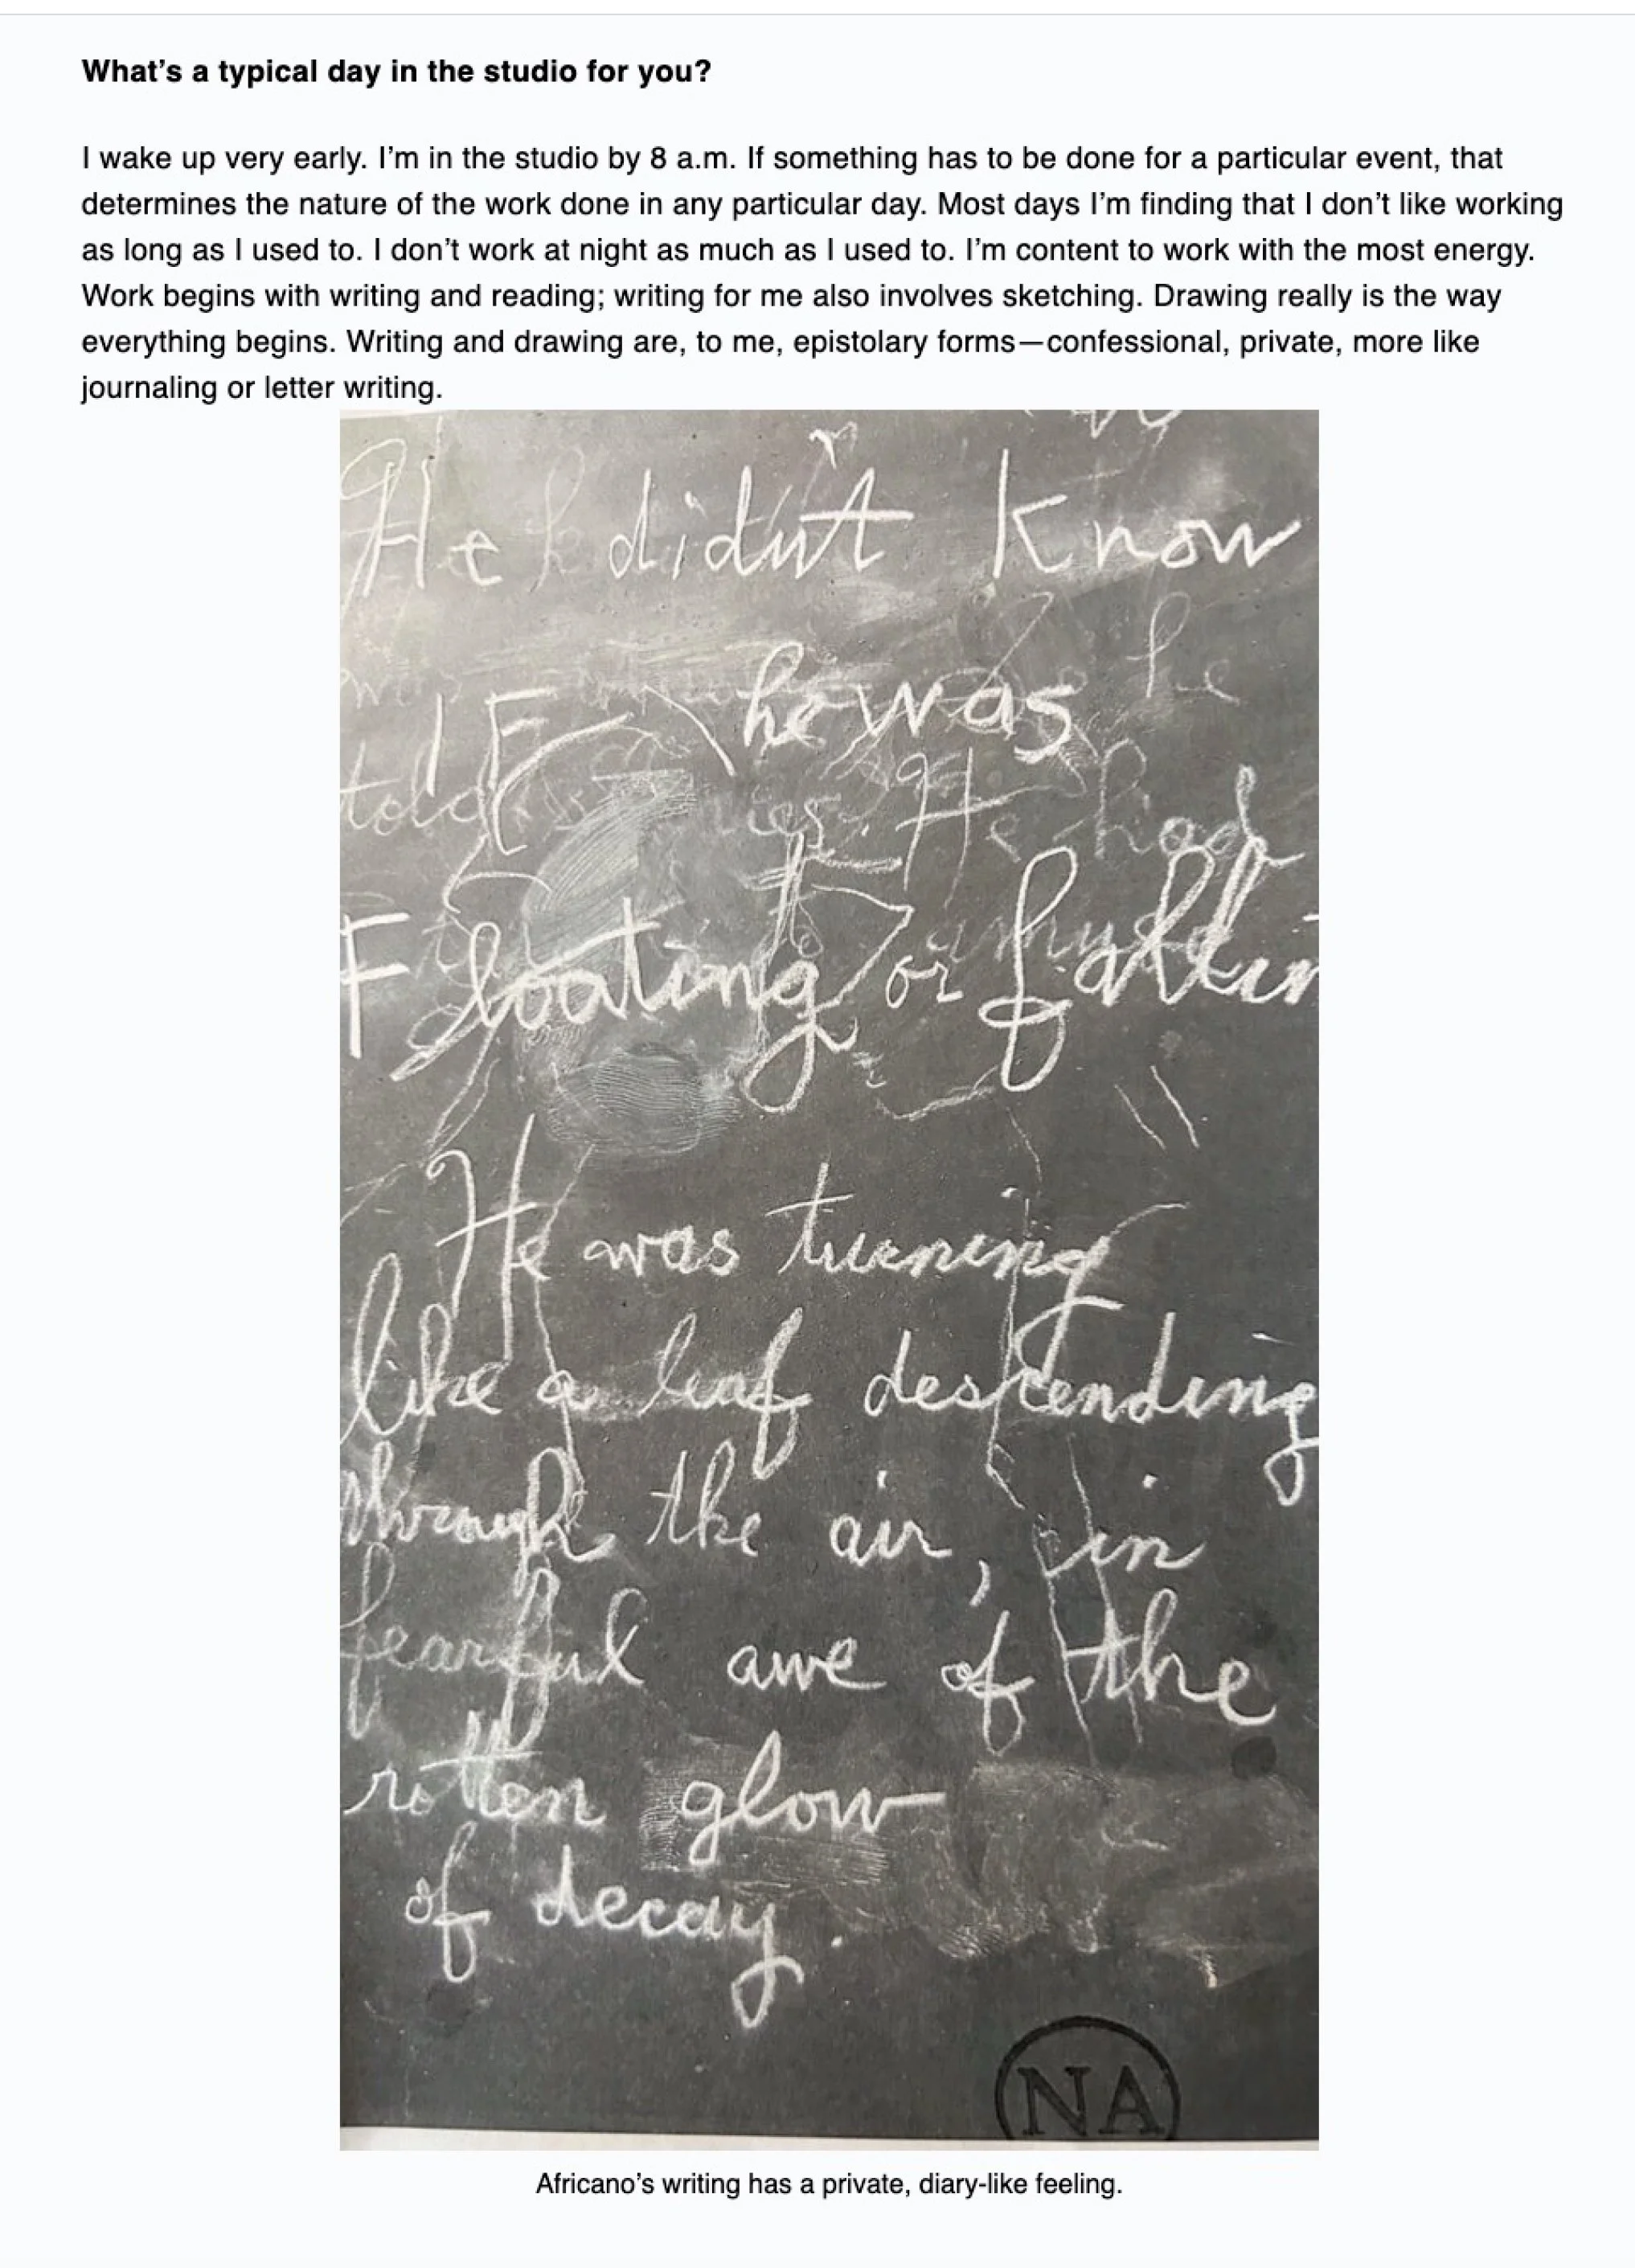 What’s a typical day in the studio for you?
I wake up very early. I’m in the studio by 8 a.m. If something has to be done for a particular event, that
determines the nature of the work done in any particular day. Most days I’m finding that I don’t like working
as long as I used to. I don’t work at night as much as I used to. I’m content to work with the most energy.
Work begins with writing and reading; writing for me also involves sketching. Drawing really is the way
everything begins. Writing and drawing are, to me, epistolary forms—confessional, private, more like
journaling or letter writing.
He didn't know
IF he was
he
told He had
Floating or fallin
He was turning
like a leaf descending
through the air, in
fearful awe of the
rotten glow
of decay.
NA
Africano’s writing has a private, diary-like feeling.